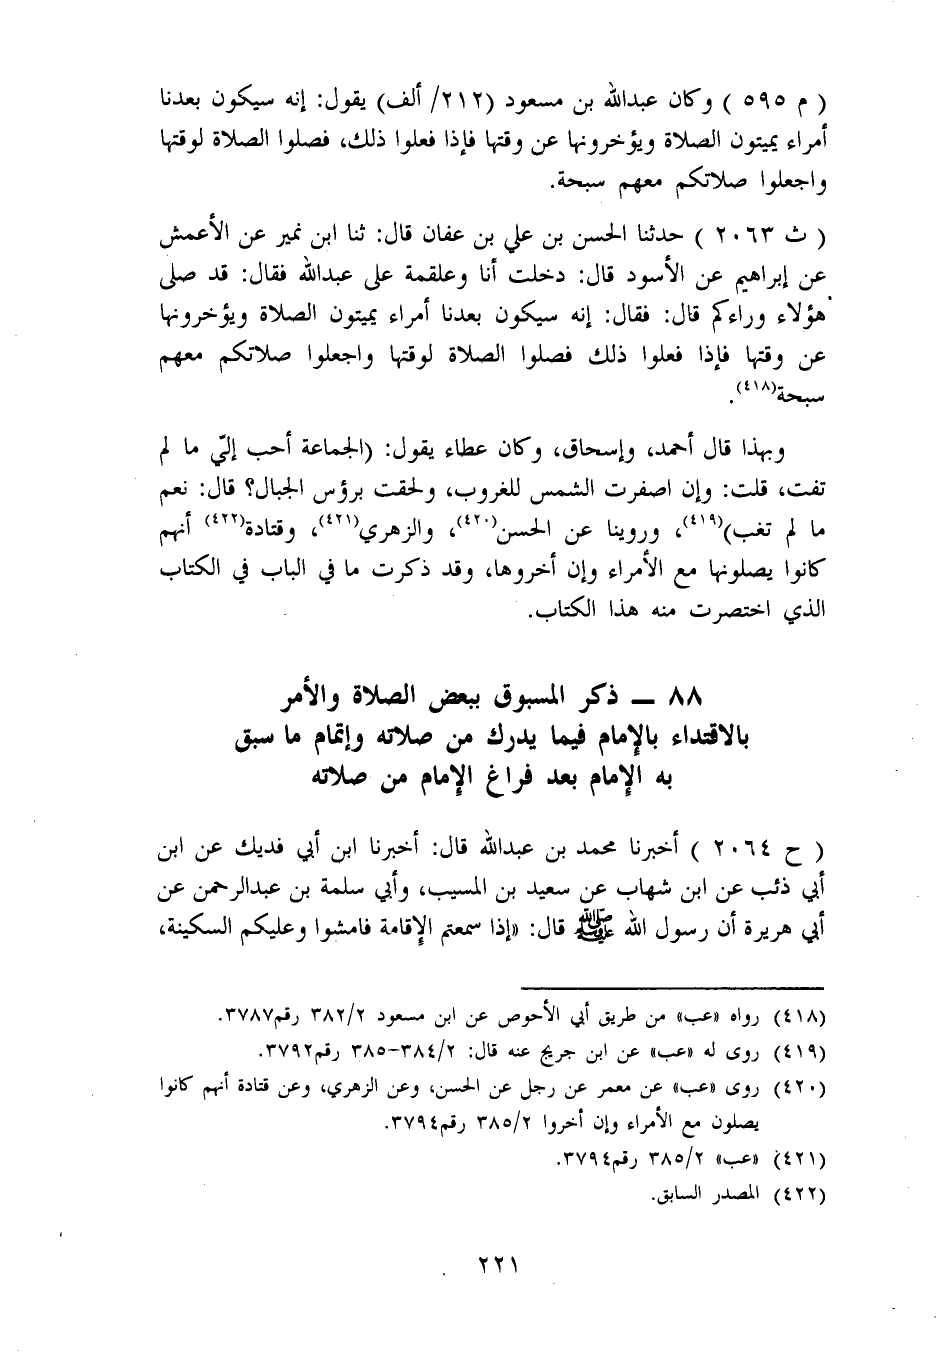 ( م ٥٩٥ ) وكان عبدالله بن مسعود (٢١٢/ ألف) يقول: إنه سيكون بعدنا
أمراء يميتون الصلاة ويؤخرونها عن وقتها فإذا فعلوا ذلك، فصلوا الصلاة لوقتها
واجعلوا صلاتكم معهم سبحة.
( ث ٢٠٦٣ ) حدثنا الحسن بن علي بن عفان قال: ثنا ابن نمير عن الأعمش
عن إبراهيم عن الأسود قال: دخلت أنا وعلقمة على عبدالله فقال: قد صلى
هؤلاء وراءكم قال: فقال: إنه سيكون بعدنا أمراء يميتون الصلاة ويؤخرونها
عن وقتها فإذا فعلوا ذلك فصلوا الصلاة لوقتها واجعلوا صلاتكم معهم
سبحة(٤١٨).
وبهذا قال أحمد، وإسحاق، وكان عطاء يقول: (الجماعة أحب إليّ ما لم
تفت، قلت: وإن اصفرت الشمس للغروب، ولحقت برؤس الجبال؟ قال: نعم
ما لم تغب)(٤١٩)، وروينا عن الحسن(٤٢٠)، والزهري(٤٢١)، وقتادة(٤٢٢) أنهم
كانوا يصلونها مع الأمراء وإن أخروها، وقد ذكرت ما في الباب في الكتاب
الذي اختصرت منه هذا الكتاب.
٨٨ ــ ذكر المسبوق ببعض الصلاة والأمر
بالاقتداء بالإمام فيما يدرك من صلاته وإتمام ما سبق
به الإمام بعد فراغ الإمام من صلاته
( ح ٢٠٦٤ ) أخبرنا محمد بن عبدالله قال: أخبرنا ابن أبي فديك عن ابن
أبي ذئب عن ابن شهاب عن سعيد بن المسيب، وأبي سلمة بن عبدالرحمن عن
أبي هريرة أن رسول الله ﷺ قال: «إذا سمعتم الإقامة فامشوا وعليكم السكينة،
(٤١٨) رواه «عب» من طريق أبي الأحوص عن ابن مسعود ٣٨٢/٢ رقم٣٧٨٧.
(٤١٩) روى له «عب» عن ابن جريج عنه قال: ٣٨٤/٢–٣٨٥ رقم٣٧٩٢.
(٤٢٠) روى «عب» عن معمر عن رجل عن الحسن، وعن الزهري، وعن قتادة أنهم كانوا
يصلون مع الأمراء وإن أخروا ٣٨٥/٢ رقم٣٧٩٤.
(٤٢١) «عب» ٣٨٥/٢ رقم٣٧٩٤.
(٤٢٢) المصدر السابق.
٢٢١